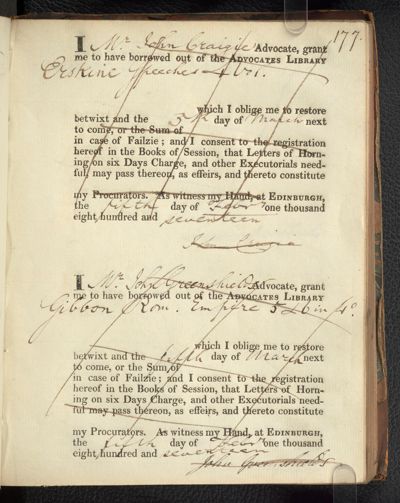 177.
I Mr. John Craigie Advocate, grant
me to have borrowed out of the ADVOCATES LIBRARY
Erskine Speeches 4 vol.
which I oblige me to restore
betwixt and the 5th day of March next
to come, or the Sum of
in case of Failzie; and I consent to the registration
hereof in the Books of Session, that Letters of Horn-
ing on six Days Charge, and other Executorials need-
ful, may pass thereon, as effeirs, and thereto constitute
my Procurators. As witness my Hand, at EDINBURGH,
the fifth day of Febry one thousand
eight hundred and seventeen
I Mr. John Greenshields Advocate, grant
me to have borrowed out of the ADVOCATES LIBRARY
Gibbon Rom. Empire 5 & 6 in 4o.
which I oblige me to restore
betwixt and the fifth day of March next
to come, or the Sum of
in case of Failzie; and I consent to the registration
hereof in the Books of Session, that Letters of Horn-
ing on six Days Charge, and other Executorials need-
ful may pass thereon, as effeirs, and thereto constitute
my Procurators. As witness my Hand, at EDINBURGH,
the fifth day of Febry one thousand
eight hundred and seventeen
John Greenshields